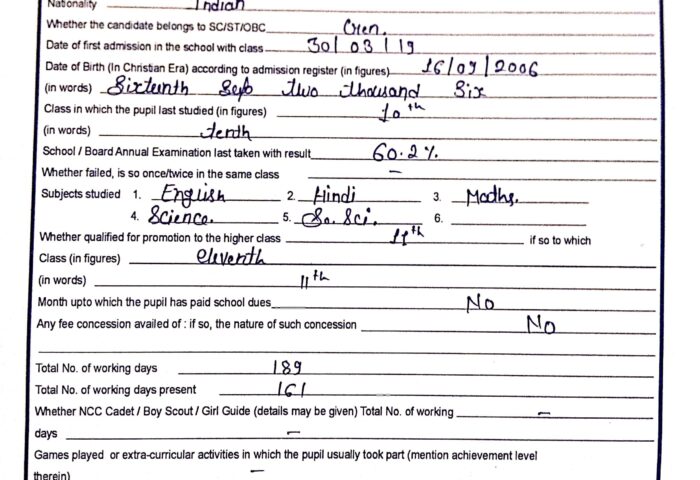 Nationality Indian
Whether the candidate belongs to SC/ST/OBC Gen.
Date of first admission in the school with class 30/ 03/19
Date of Birth (In Christian Era) according to admission register (in figures) 16/09/2006
(in words) Sixteenth Sep two thousand Six
Class in which the pupil last studied (in figures) 10th
(in words) tenth
School / Board Annual Examination last taken with result 60.2%.
Whether failed, is so once/twice in the same class –
Subjects studied 1. English 2. Hindi 3. Maths.
4. Science. 5. So. Sci. 6.
Whether qualified for promotion to the higher class 11th if so to which
Class (in figures) eleventh
(in words) 11th
Month upto which the pupil has paid school dues No
Any fee concession availed of : if so, the nature of such concession No
Total No. of working days 189
Total No. of working days present 161
Whether NCC Cadet / Boy Scout / Girl Guide (details may be given) Total No. of working –
days –
Games played or extra-curricular activities in which the pupil usually took part (mention achievement level
therein) –